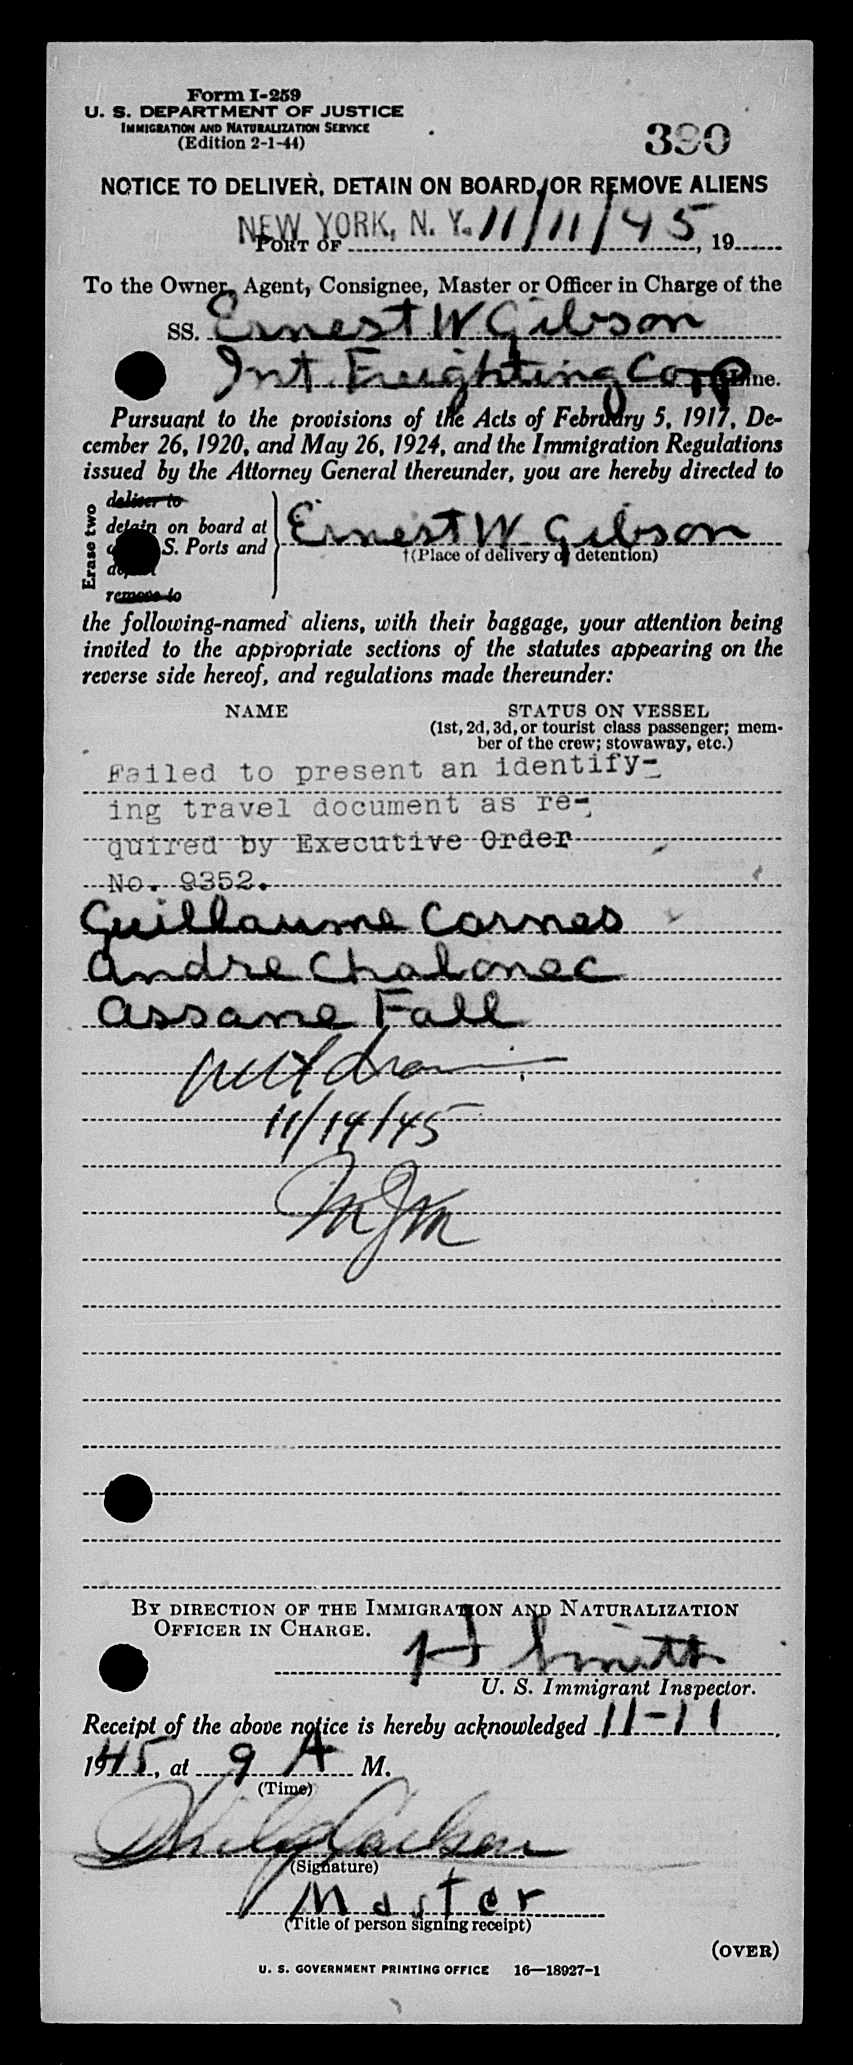 Form I-259
U. S. DEPARTMENT OF JUSTICE
IMMIGRATION AND NATURALIZATION SERVICE
(Edition 2-1-44)
390
NOTICE TO DELIVER, DETAIN ON BOARD, OR REMOVE ALIENS
NEW YORK, N. Y. 11/11/45
PORT OF , 19
To the Owner, Agent, Consignee, Master or Officer in Charge of the
SS. Ernest W Gibson
Int. Freighting Corp Line.
Pursuant to the provisions of the Acts of February 5, 1917, De-
cember 26, 1920, and May 26, 1924, and the Immigration Regulations
issued by the Attorney General thereunder, you are hereby directed to
Erase two
deliver to
detain on board at
S. Ports and
remove to
Ernest W. Gibson
†(Place of delivery or detention)
the following-named aliens, with their baggage, your attention being
invited to the appropriate sections of the statutes appearing on the
reverse side hereof, and regulations made thereunder:
NAME STATUS ON VESSEL
(1st, 2d, 3d, or tourist class passenger; mem-
ber of the crew; stowaway, etc.)
Failed to present an identify-
ing travel document as re-
quired by Executive Order
No. 9352.
Guillaume Cornes
Andre Chalonec
Assane Fall
11/14/45
MJM
BY DIRECTION OF THE IMMIGRATION AND NATURALIZATION
OFFICER IN CHARGE.
H Smith
U. S. Immigrant Inspector.
Receipt of the above notice is hereby acknowledged 11-11,
1945, at 9 A M.
(Time)
(Signature)
Master
(Title of person signing receipt)
(OVER)
U. S. GOVERNMENT PRINTING OFFICE 16—18927-1